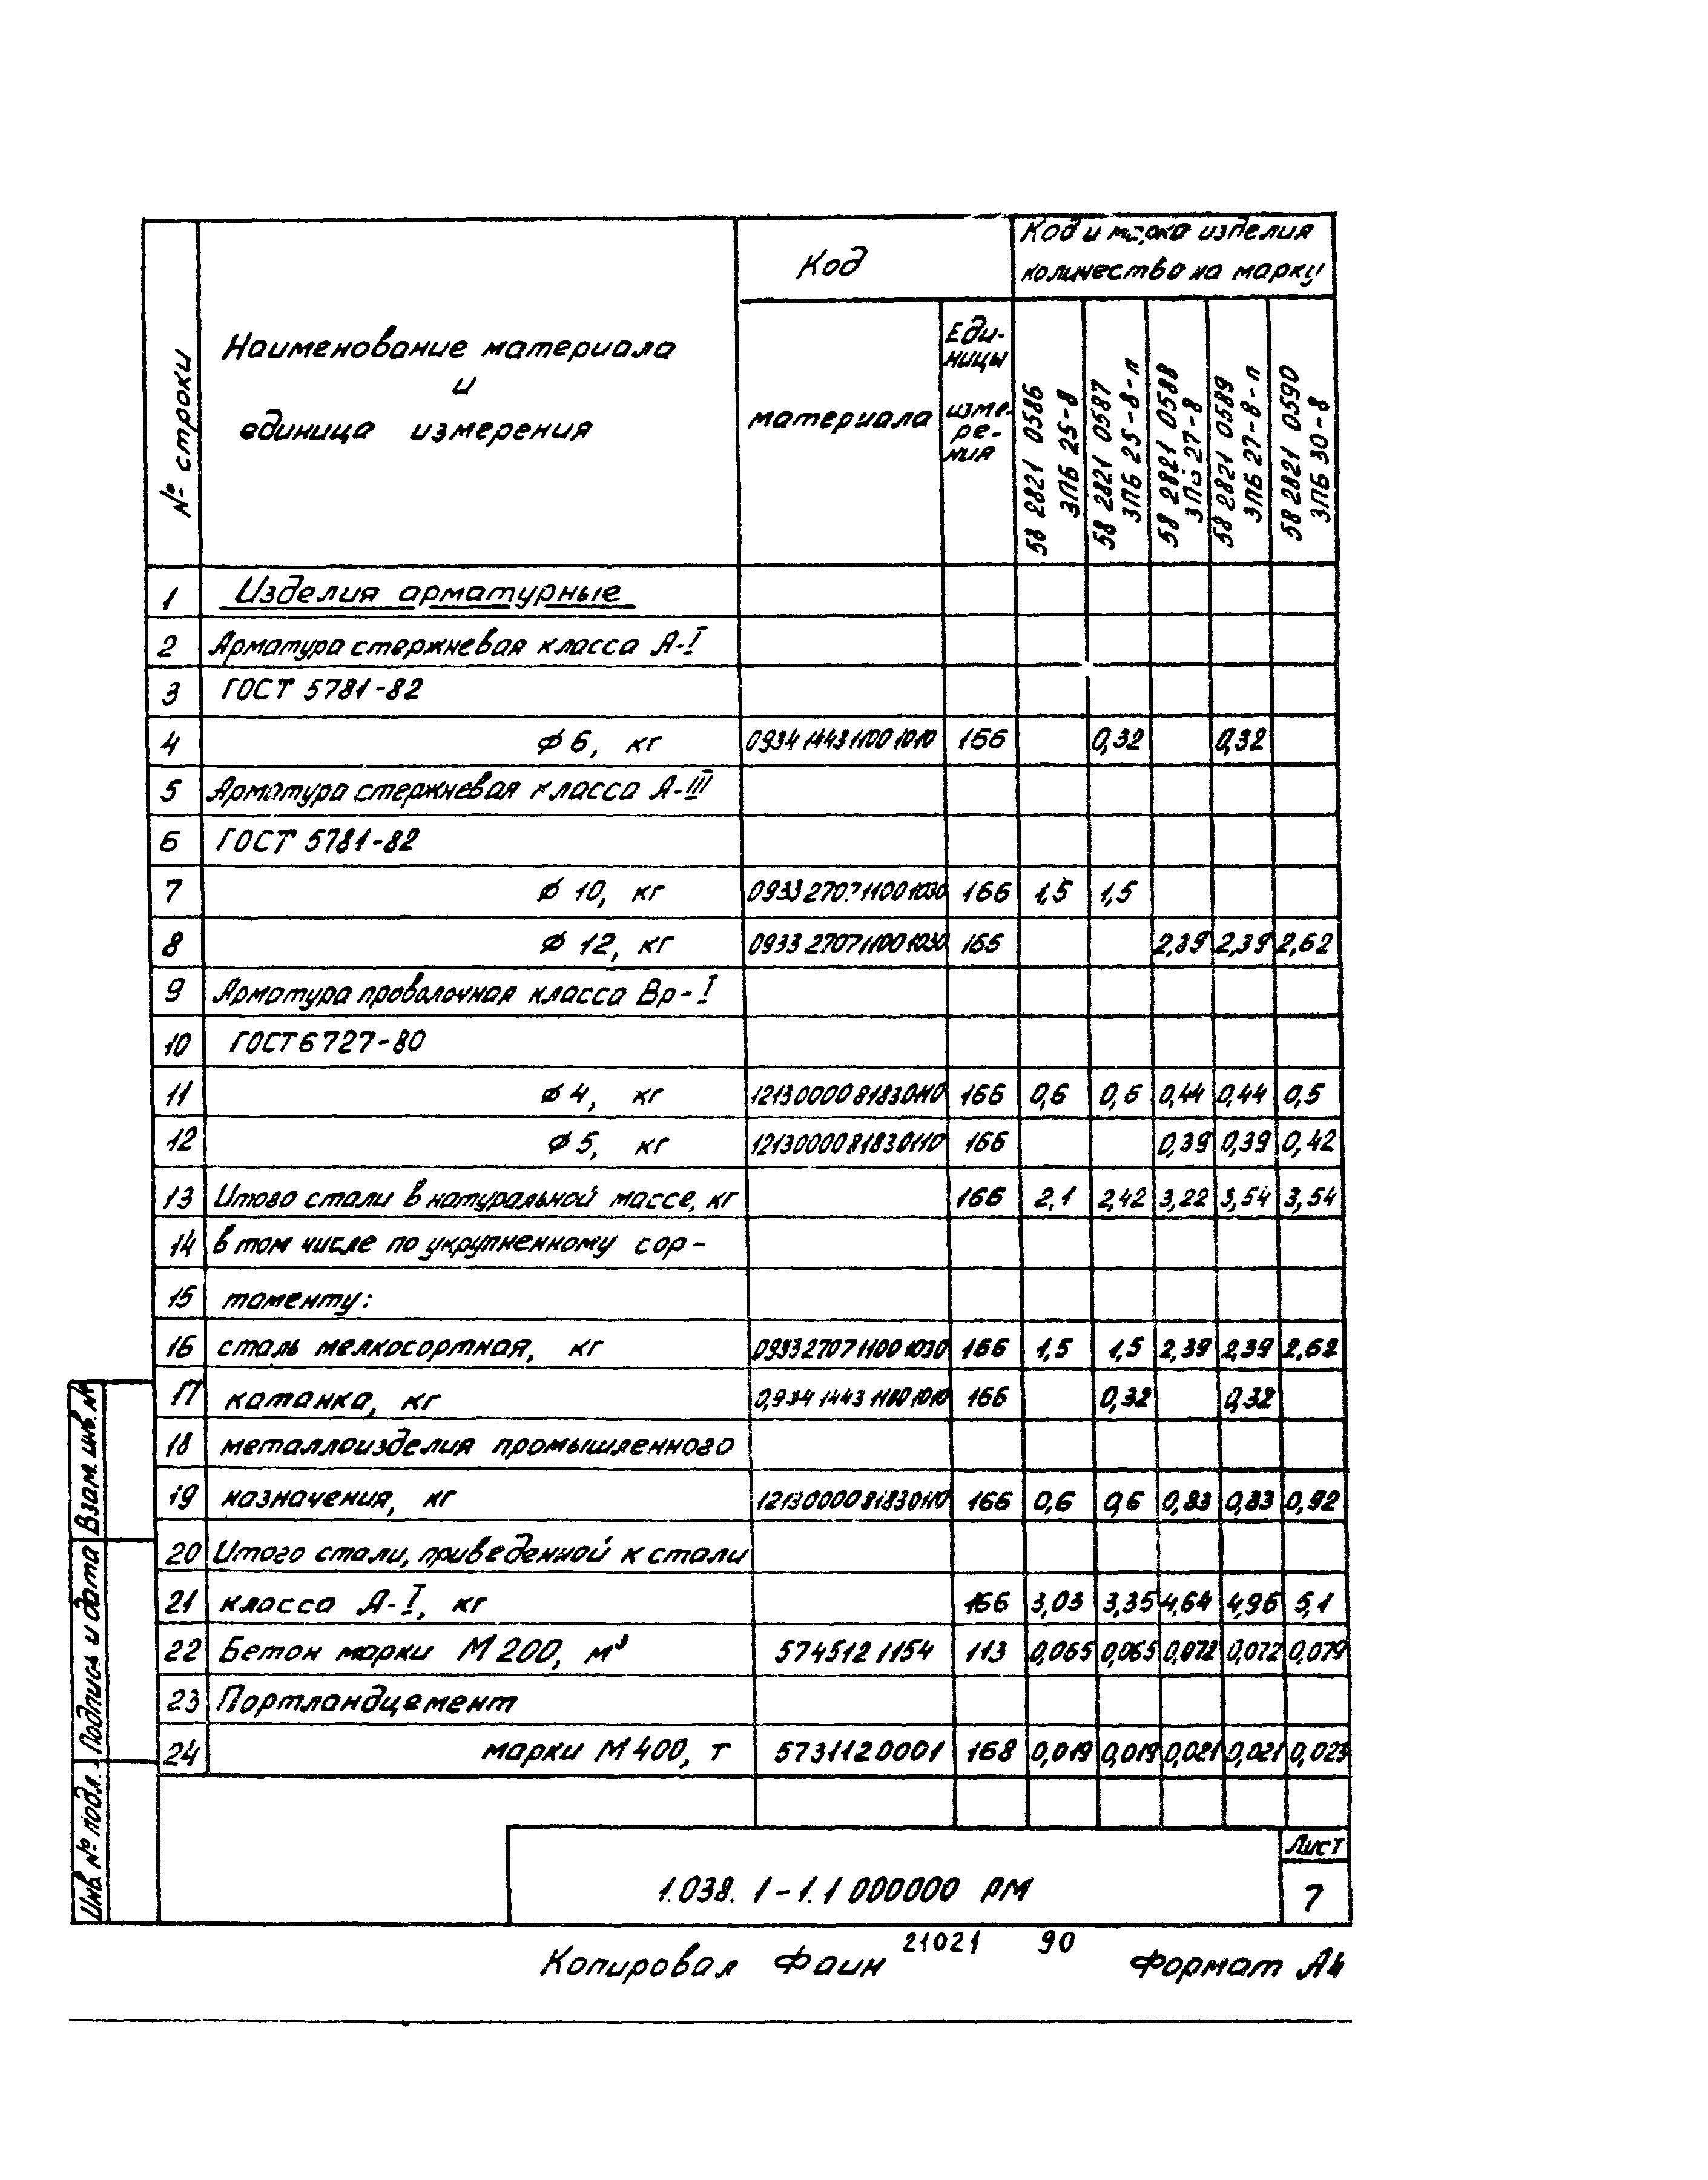 № строки
Наименование материала
и
единица измерения
Код
материала
Еди-
ницы
изме-
ре-
ния
Код и марка изделия
количество на марку
58 2821 0586
3ПБ 25-8
58 2821 0587
3ПБ 25-8-п
58 2821 0588
3ПБ 27-8
58 2821 0589
3ПБ 27-8-п
58 2821 0590
3ПБ 30-8
1 Изделия арматурные
2 Арматура стержневая класса А-I
3 ГОСТ 5781-82
4 ϕ 6, кг 0934 1443 1100 1010 166 0,32 0,32
5 Арматура стержневая класса А-III
6 ГОСТ 5781-82
7 ϕ 10, кг 166 1,5 1,5
8 ϕ 12, кг 0933 2707 1100 1030 166 2,39 2,39 2,62
9 Арматура проволочная класса Вр-I
10 ГОСТ 6727-80
11 ϕ 4, кг 1213000081830110 166 0,6 0,6 0,44 0,44 0,5
12 ϕ 5, кг 1213000081830110 166 0,39 0,39 0,42
13 Итого стали в натуральной массе, кг 166 2,1 2,42 3,22 3,54 3,54
14 в том числе по укрупненному сор-
15 таменту:
16 сталь мелкосортная, кг 0933270711001030 166 1,5 1,5 2,39 2,39 2,62
17 катанка, кг 166 0,32 0,32
18 металлоизделия промышленного
19 назначения, кг 1213000081830110 166 0,6 0,6 0,83 0,83 0,92
20 Итого стали, приведенной к стали
21 класса А-I, кг 166 3,03 3,35 4,64 4,96 5,1
22 Бетон марки М 200, м³ 574512 1154 113 0,065 0,065 0,072 0,072 0,079
23 Портландцемент
24 марки М 400, т 5731120001 168 0,019 0,019 0,021 0,021 0,023
Взам. инв. №
Подпись и дата
Инв. № подл.
1.038.1-1.1 000000 РМ
Лист
7
21021 90
Копировал Фаин Формат А4